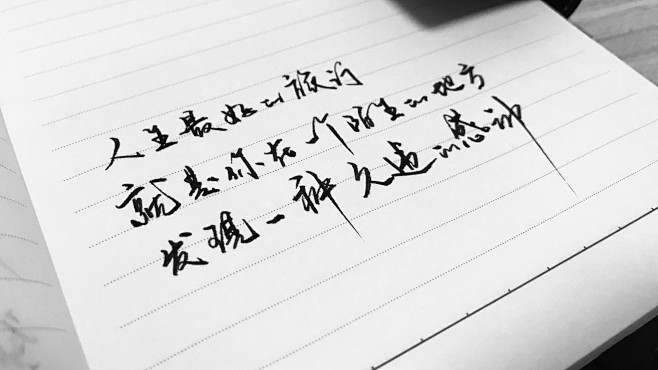 人生最好的旅行
就是你在一个陌生的地方
发现一种久违的感动